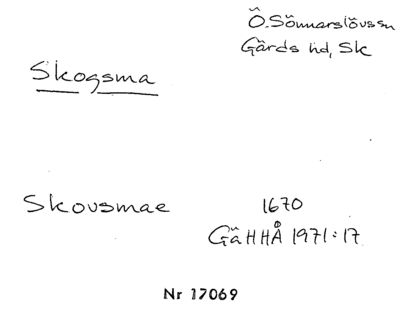 Ö. Sönnarslövssn
Gärds hd, Sk
Skogsma
Skovsmae 1670
GäHHÅ 1971:17
Nr 17069